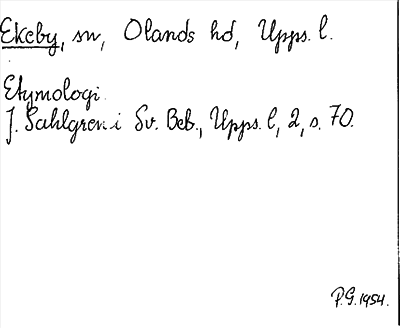 Ekeby, sn, Olands hd, Upps. l.
Etymologi
J. Sahlgren i Sv. Beb., Upps. l, 2, s. 70.
P.G. 1954.